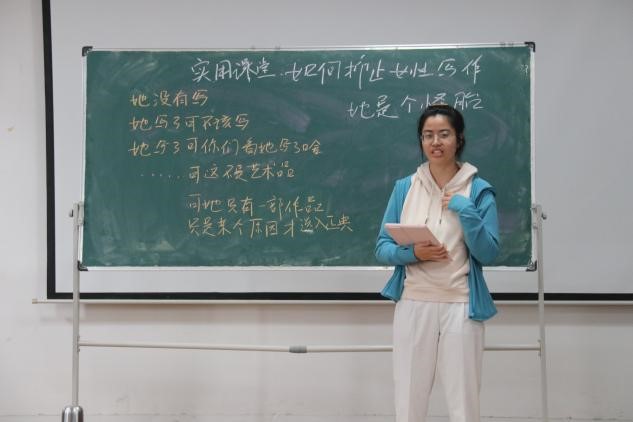 实用课堂：如何抑止女性写作
她是个怪胎
她没有写
她写了可不该写
她写了可你们看她写了啥
……可这不是艺术品
可她只有一部作品
只是某个原因才进入正典